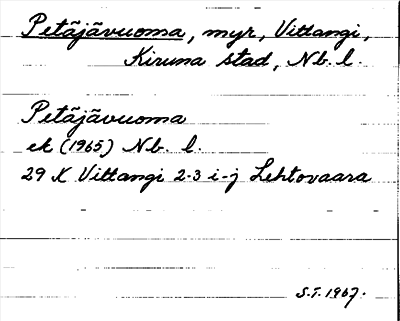 Petäjävuoma, myr, Vittangi,
Kiruna stad, Nb. l.
Petäjävuoma
ek (1965) Nb. l.
29 K Vittangi 2-3 i-j Lehtovaara
S.T. 1967.